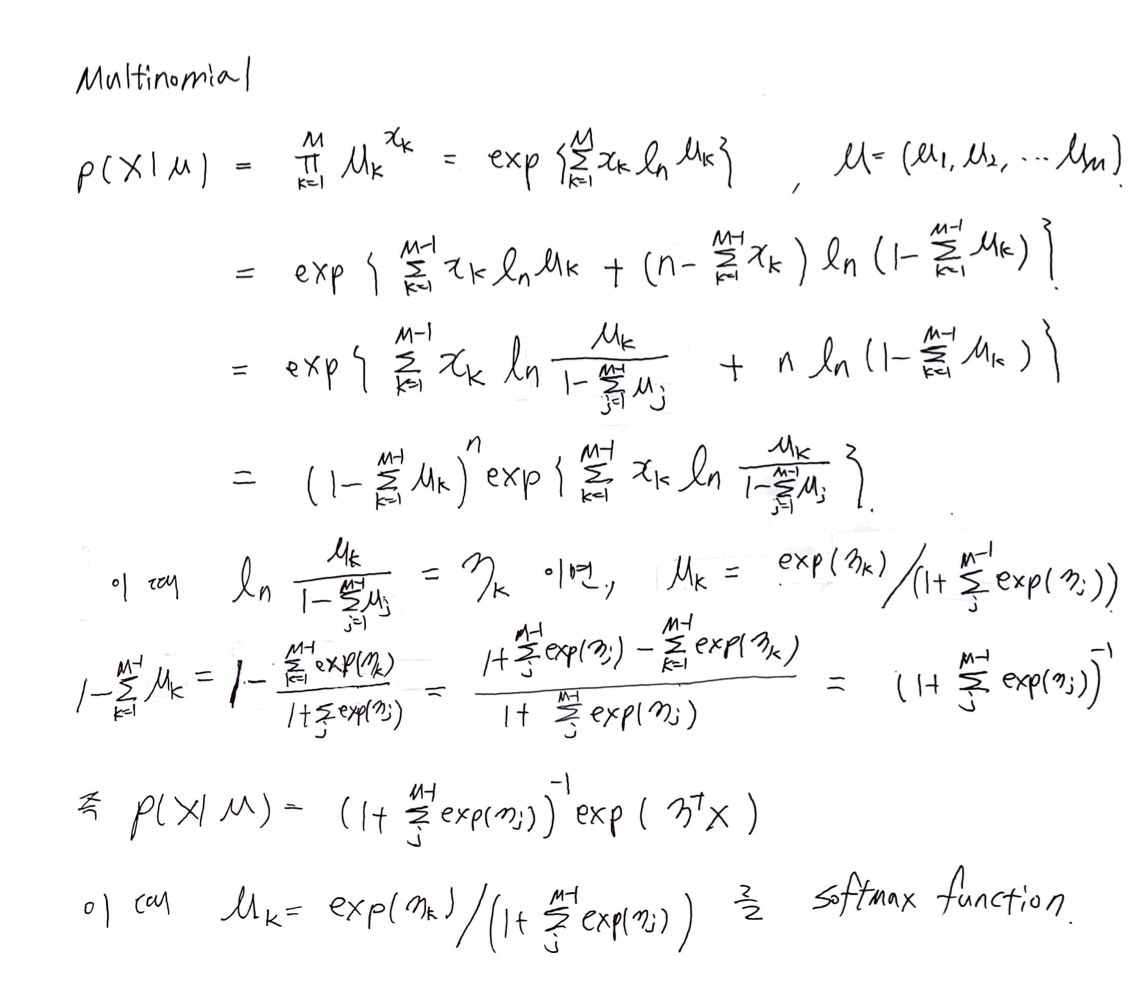 Multinomial
p(X|μ) = ∏_{k=1}^{M} μ_k^{x_k} = exp{∑_{k=1}^{M} x_k ln μ_k} , μ = (μ_1, μ_2, … μ_M)
= exp{∑_{k=1}^{M-1} x_k ln μ_k + (n - ∑_{k=1}^{M-1} x_k) ln(1 - ∑_{k=1}^{M-1} μ_k)}
= exp{∑_{k=1}^{M-1} x_k ln \frac{μ_k}{1 - ∑_{j=1}^{M-1} μ_j} + n ln(1 - ∑_{k=1}^{M-1} μ_k)}
= (1 - ∑_{k=1}^{M-1} μ_k)^n exp{∑_{k=1}^{M-1} x_k ln \frac{μ_k}{1 - ∑_{j=1}^{M-1} μ_j}}.
이 때 ln \frac{μ_k}{1 - ∑_{j=1}^{M-1} μ_j} = η_k 이면, μ_k = exp(η_k)/(1 + ∑_{j}^{M-1} exp(η_j))
1 - ∑_{k=1}^{M-1} μ_k = 1 - \frac{∑_{k=1}^{M-1} exp(η_k)}{1 + ∑_{j} exp(η_j)} = \frac{1 + ∑_{j}^{M-1} exp(η_j) - ∑_{k=1}^{M-1} exp(η_k)}{1 + ∑_{j}^{M-1} exp(η_j)} = (1 + ∑_{j}^{M-1} exp(η_j))^{-1}
즉 p(X|μ) = (1 + ∑_{j}^{M-1} exp(η_j))^{-1} exp(η^T X)
이 때 μ_k = exp(η_k)/(1 + ∑_{j}^{M-1} exp(η_j)) 를 softmax function.